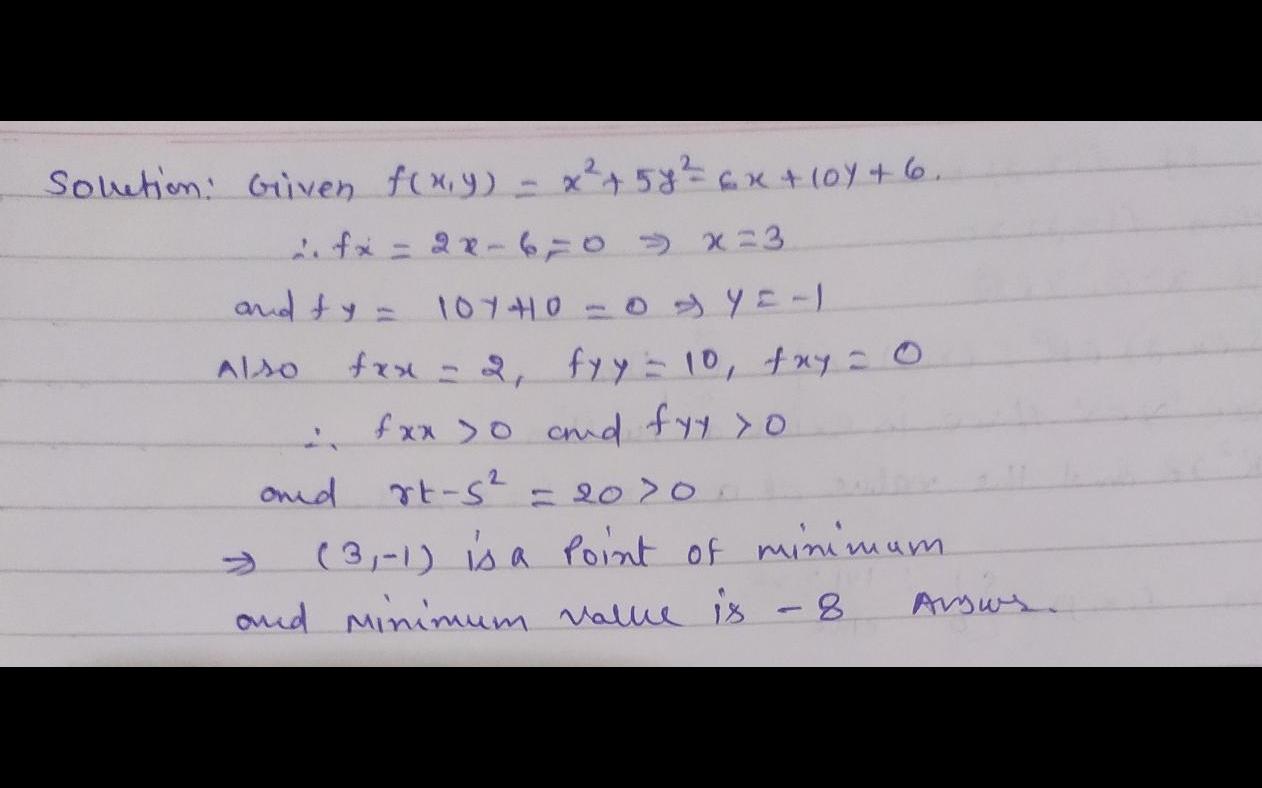 Solution: Given f(x,y) = x²+ 5y²- 6x + 10y + 6.
∴ fx = 2x - 6 = 0 ⇒ x = 3
and fy = 10y+10 = 0 ⇒ y = -1
Also fxx = 2, fyy = 10, fxy = 0
∴ fxx > 0 and fyy > 0
and rt - s² = 20 > 0
⇒ (3,-1) is a Point of minimum
and minimum value is - 8 Answer.